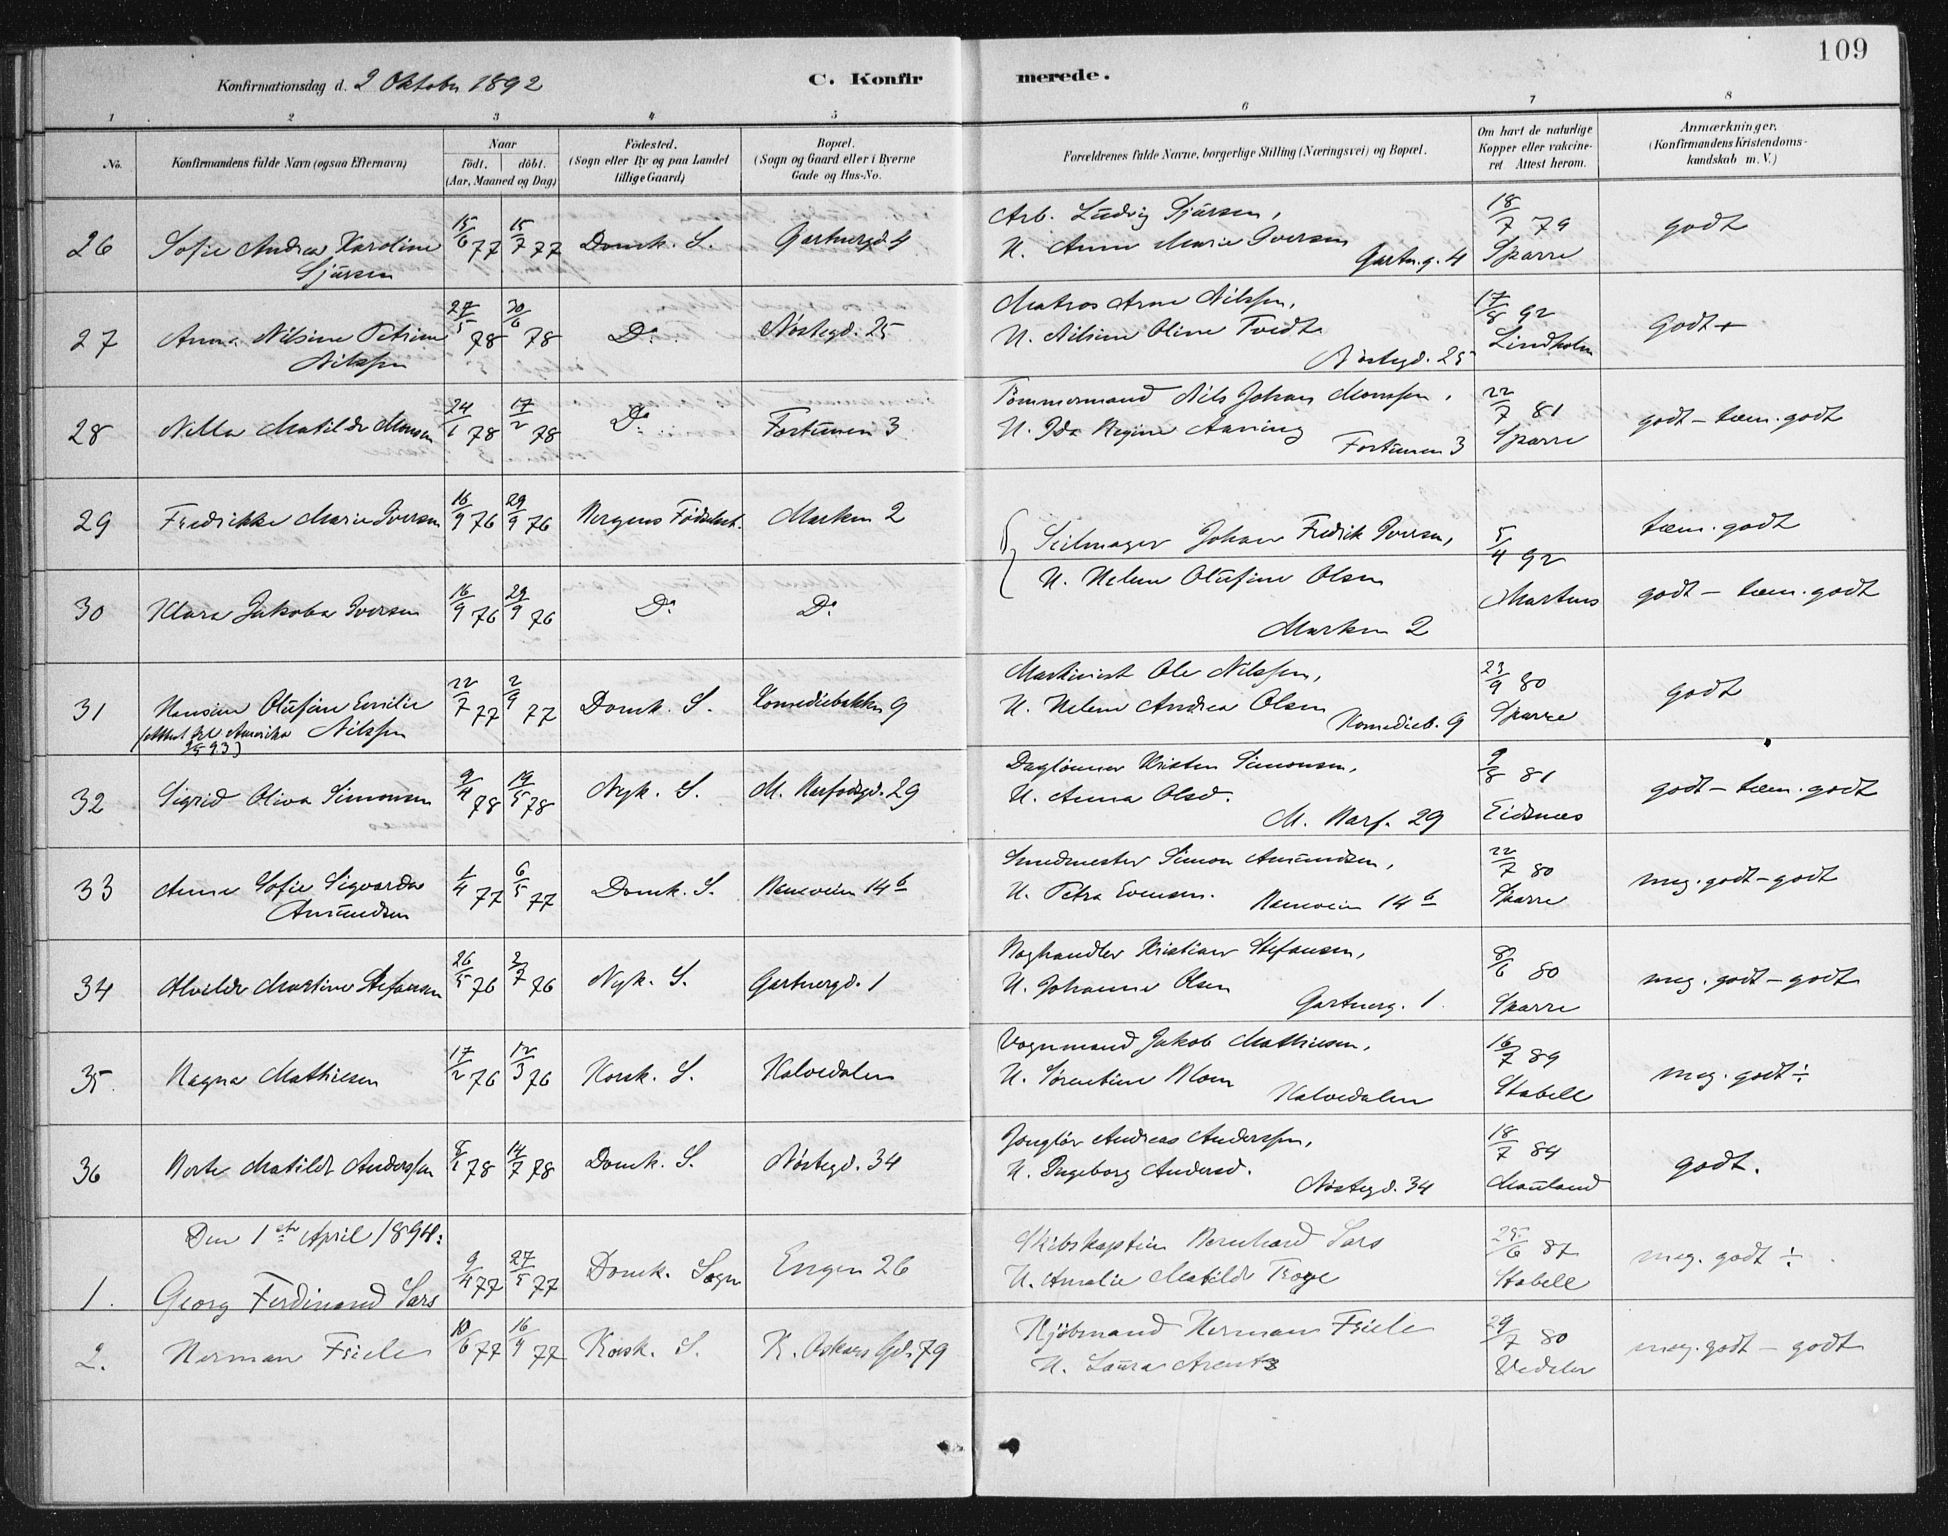 109
Konfirmationsdag d. 2 Oktober 1892
C. Konfirmerede.
1 2 3 4 5 6 7 8
No.
Konfirmandens fulde Navn (ogsaa Efternavn)
Naar
født. døbt.
(Aar, Maaned og Dag)
Fødested.
(Sogn eller By og paa Landet
tillige Gaard)
Bopæl.
(Sogn og Gaard eller i Byerne
Gade og Hus-No.
Forældrenes fulde Navne, borgerlige Stilling (Næringsvei) og Bopæl.
Om havt de naturlige
Kopper eller vakcine-
ret Attest herom.
Anmærkninger.
(Konfirmandens Kristendoms-
kundskab m. V.)
26 Sofie Andrea Karoline 15/6 77 15/7 77 Domk. S. Gartnergd. 4
Sjursen
Arb. Ludvig Sjursen,
H. Anne Marie Iversen
Gartn.g. 4
18/7 79
Sparre
godt
27 Anna Nilsine Petrine 27/5 78 30/6 78 Do Nøstegd. 25
Nilssen
Matros Arne Nilssen,
H. Nilsine Oline Tvedt
Nøstegd. 25
17/8 92
Lindholm
godt +
28 Nilla Matilde Monsen 24/1 78 17/2 78 Do Fortunen 3
Tømmermand Nils Johan Monssen,
H. Ida Regine Aaning
Fortunen 3
22/7 81
Sparre
godt - tem. godt
29 Fredrikke Marie Iversen 16/9 76 29/9 76 Bergens Fødselsst. Marken 2
Seilmager Johan Fredrik Iversen,
5/4 92
tem. godt
30 Klara Jakoba Iversen 16/9 76 29/9 76 Do Do
H. Helene Olufine Olsen
Marken 2
Martens
godt - tem. godt
31 Hansine Olufine Emilie 22/7 77 2/9 77 Domk. S. Komediebakken 9
(Attest til Amerika Nilssen
93)
Maskinist Ole Nilssen,
H. Helene Andrea Olsen
Komedieb. 9
23/9 80
Sparre
godt
32 Sigrid Oliva Simonsen 9/4 78 19/5 78 Nyk. S. M. Korfodgd. 29
Daglønner Kristen Simonsen,
H. Anna Olsd.
M. Korf. 29
9/8 81
Eidsnes
godt - tem. godt
33 Anna Sofie Sigvarda 1/4 77 6/5 77 Domk. S. Kaneveien 14 b
Amundsen
Smedmester Simon Amundsen,
H. Petra Evensen. Kaneveien 14 b
22/7 80
Sparre
meg. godt - godt
34 Alvilde Martine Stefansen 26/5 76 2/7 76 Nyk. S. Gartnergd. 1
Høghandler Kristian Stefansen,
H. Johanne Olsen
Gartnerg. 1.
8/6 80
Sparre
meg. godt - godt
35. Ragna Mathiesen 17/2 76 12/3 76 Korsk. S. Kalvedalen
Vognmand Jakob Mathiesen,
H. Sørentine Blom
Kalvedalen
16/7 89
Stabell
meg. godt ÷
36 Berte Matilde Anderssen 8/1 78 14/7 78 Domk. S. Nøstegd. 34
Jonglør Andreas Anderssen,
H. Ingeborg Andersd.
Nøstegd. 34
18/7 84
Mauland
godt.
Den 1ste April 1894:
1. Georg Ferdinand Sars 9/4 77 27/5 77 Domk. Sogn Engen 26
Skibskaptein Bernhard Sars
H. Amalie Matilde Troye
25/6 87
Stabell
meg. godt ÷
2. Herman Friele 10/6 77 16/9 77 Korsk. S. K. Oskars Gd. 79
Kjøbmand Herman Friele
H. Laura Arentz
29/7 80
Vedeler
meg. godt - godt